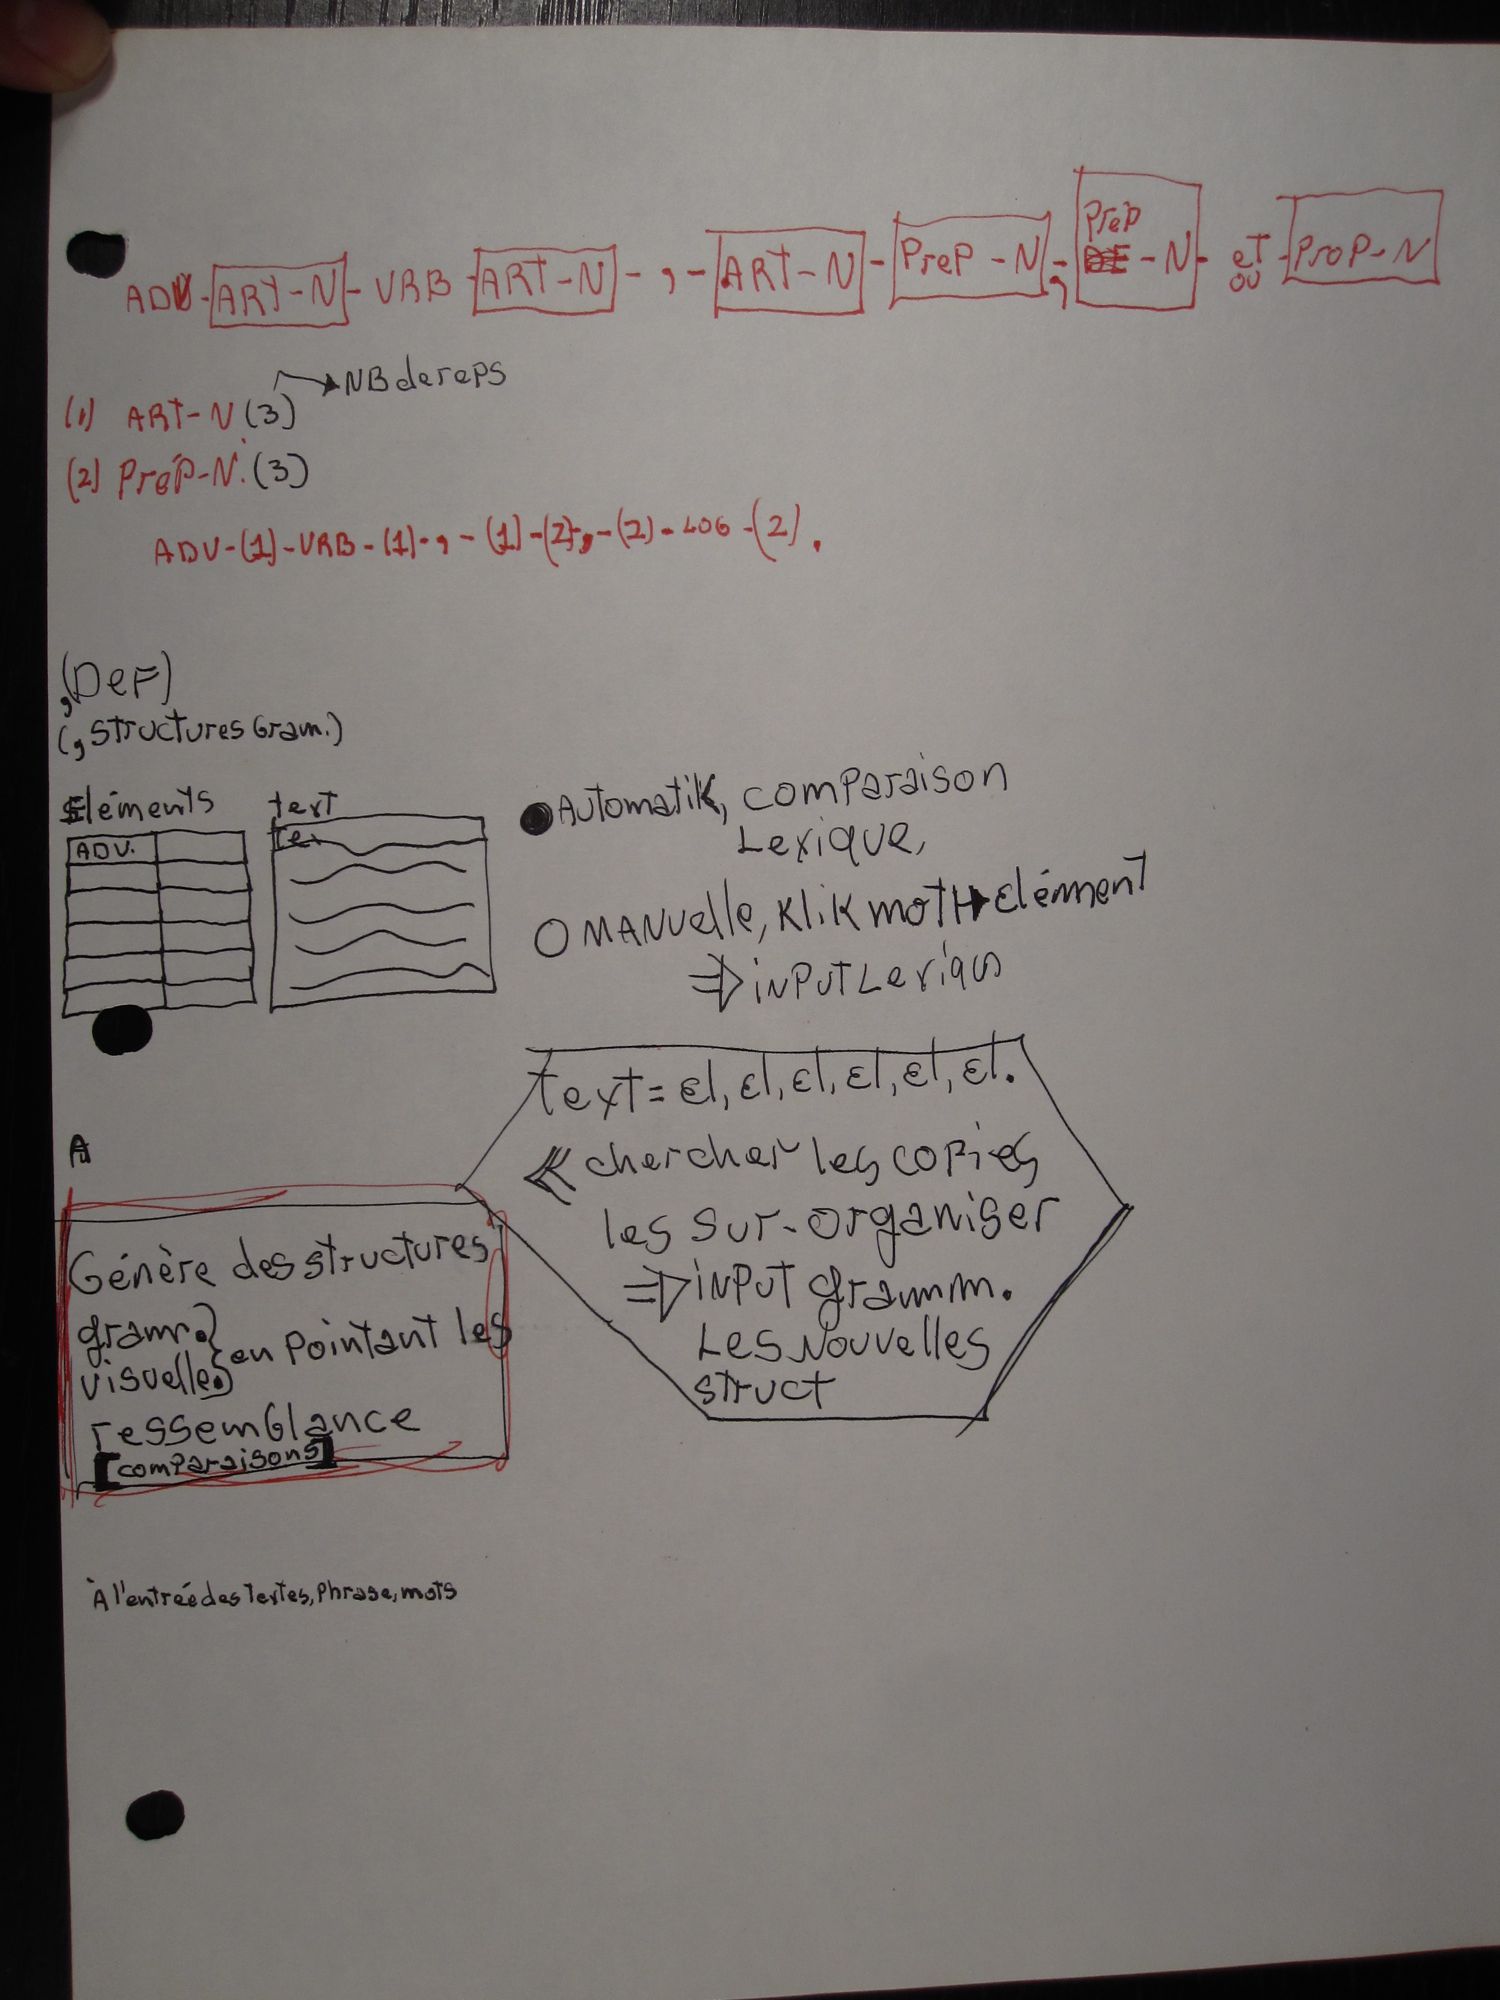 ADV-ART-N-VRB-ART-N-,-ART-N-PreP-N-,PreP-N-et ou-PreP-N
NB de reps
(1) ART-N(3)
(2) Prép-N.(3)
ADV-(1)-VRB-(1)-,-(1)-(2)-,-(2)-LOG-(2).
,(DeF)
(,structures Gram.)
Eléments
ADV.
text
Tex
Automatik, comparaison
Lexique,
O MANuelle, Klik mot → Elément
⇒ iNPUT Lexiqu
text = El, El, El, El, El, El.
« chercher les copies
les sur-organiser
⇒ iNPUT gramm.
Les Nouvelles
struct
A
Génère des structures
gram.} en pointant les
visuelle.}
ressemblance
[comparaisons]
À l'entrée des textes, Phrase, mots